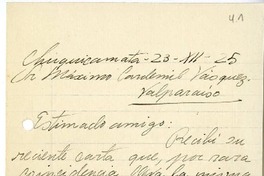 Chuquicamata - 23 - XII - 25
Sr Máximo Cardemil Vásquez.
Valparaiso
Estimado amigo:
Recibí su
reciente carta que, por rara
coincidencia la misma